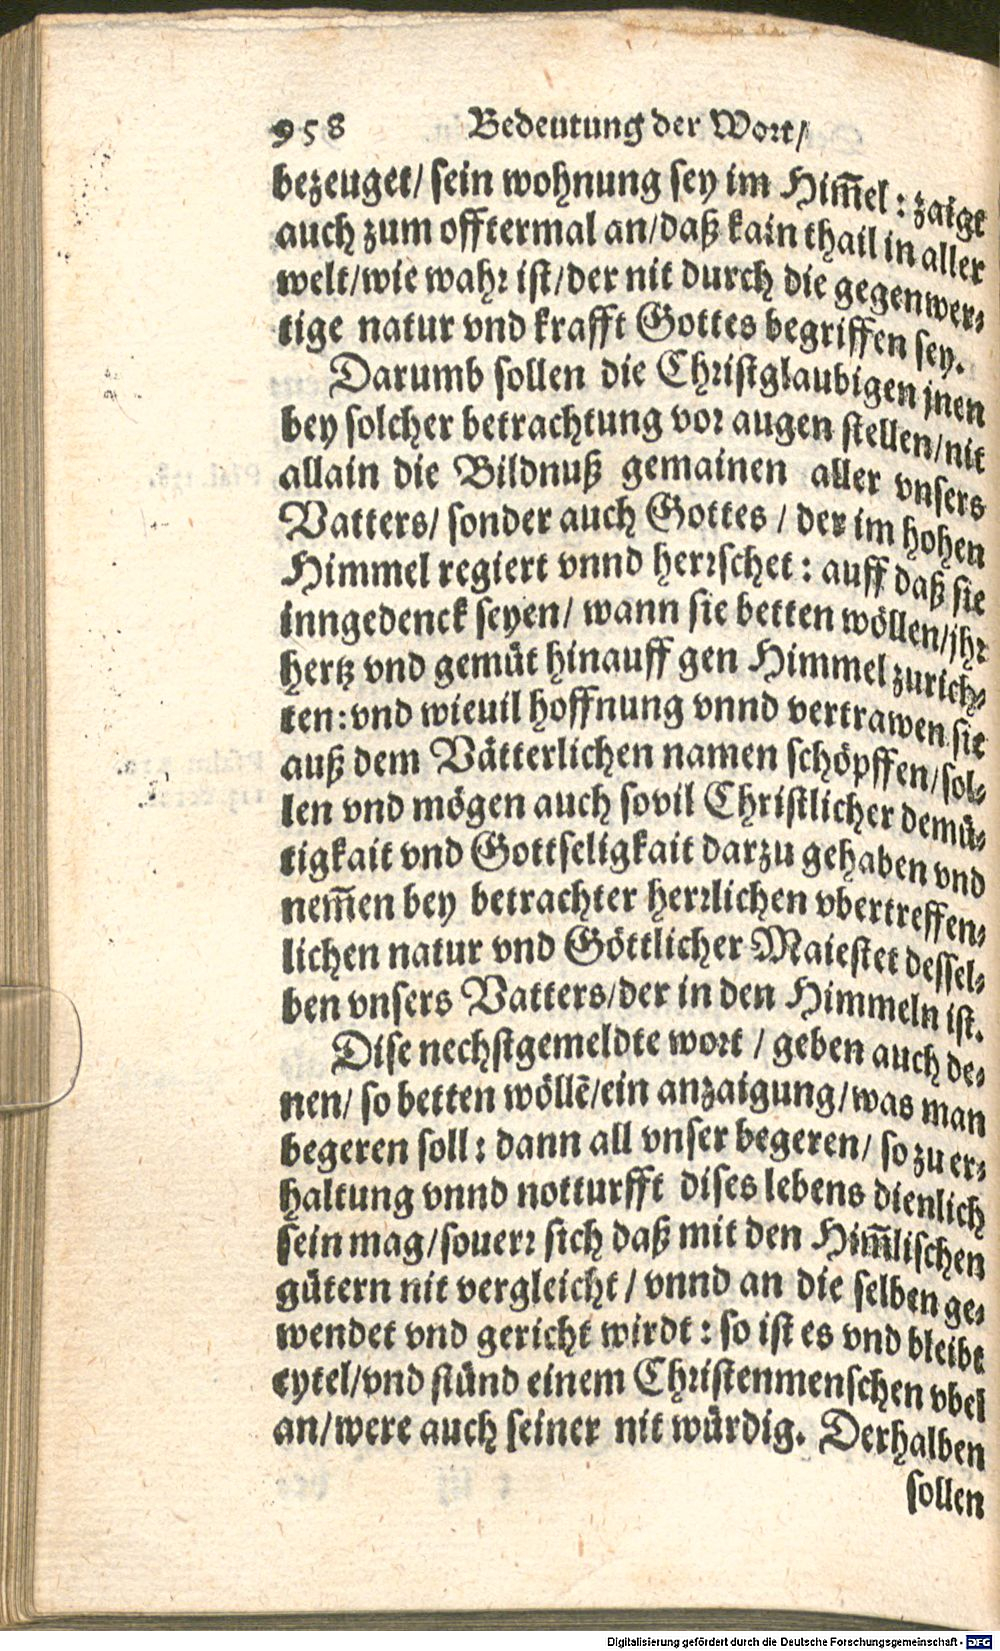 958 Bedeutung der Wort/
bezeuget/ sein wohnung sey im Him̃el : zaigt
auch zum offtermal an/daß kain thail in aller
welt/wie wahr ist/der nit durch die gegenwer⸗
tige natur vnd krafft Gottes begriffen sey.
Darumb sollen die Christglaubigen jnen
bey solcher betrachtung vor augen stellen/nit
allain die Bildnuß gemainen aller vnsers
Vatters/ sonder auch Gottes / der im hohen
Himmel regiert vnnd herrschet : auff daß sie
inngedenck seyen/ wann sie betten wöllen/jhr
hertz vnd gemüt hinauff gen Himmel zurich⸗
ten:vnd wieuil hoffnung vnnd vertrawen sie
auß dem Vätterlichen namen schöpffen/sol⸗
len vnd mögen auch souil Christlicher demü⸗
tigkait vnd Gottseligkait darzu gehaben vnd
nem̃en bey betrachter herrlichen vbertreffen⸗
lichen natur vnd Göttlicher Maiestet dessel⸗
ben vnsers Vatters/der in den Himmeln ist.
Dise nechstgemeldte wort / geben auch de⸗
nen/ so betten wöllẽ/ein anzaigung/was man
begeren soll : dann all vnser begeren/ so zu er⸗
haltung vnnd notturfft dises lebens dienlich
sein mag/souerr sich daß mit den Him̃lischen
gütern nit vergleicht / vnnd an die selben ge⸗
wendet vnd gericht wirdt : so ist es vnd bleibt
eytel/vnd stünd einem Christenmenschen vbel
an/were auch seiner nit würdig. Derhalben
sollen
Digitalisierung gefördert durch die Deutsche Forschungsgemeinschaft - DFG